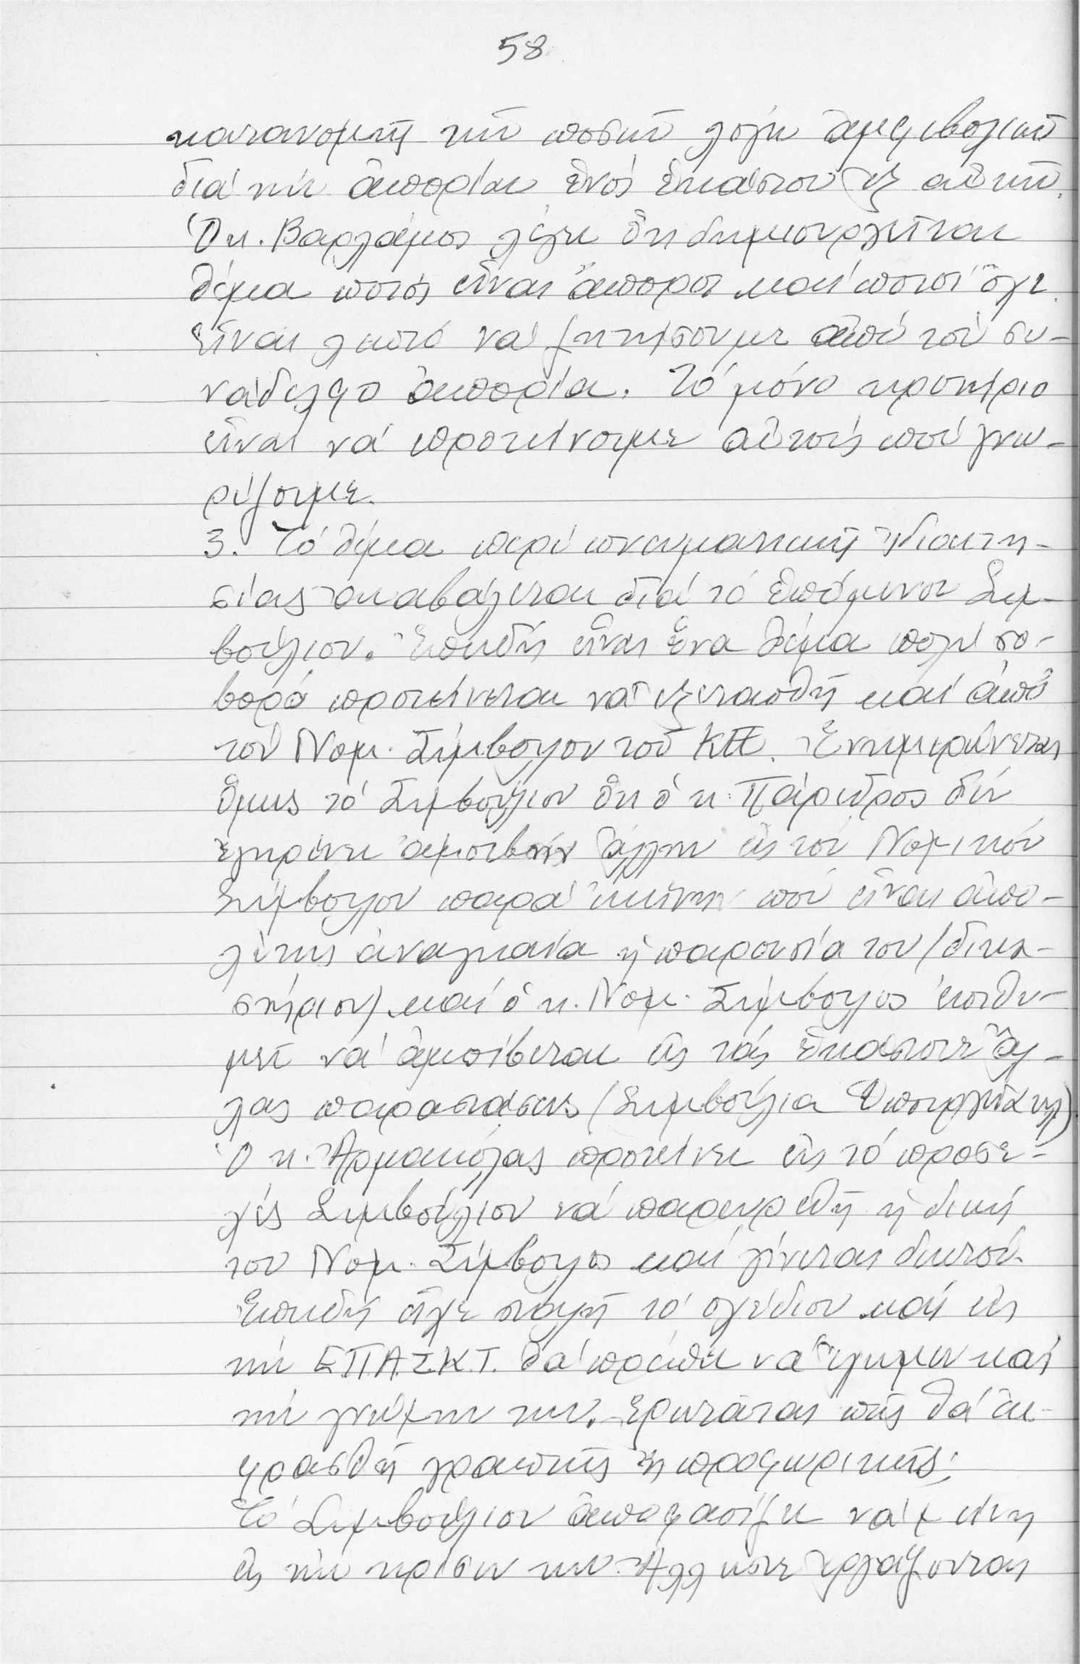 58
κατανομή τῶν ποσῶν λόγῳ ἀμφιβολιῶν
διά τήν ἀπορίαν ἑνός ἑκάστου ἐξ αὐτῶν.
Ὁ κ. Βαρλάμος λέγει ὅτι δημιουργεῖται
θέμα ποιός εἶναι ἄποροι καί ποιοί ὄχι.
Εἶναι λεπτό νά ζητήσουμε ἀπό τόν συ-
νάδελφο ἀπορία. Τό μόνο κριτήριο
εἶναι νά προτείνουμε αὐτούς πού γνω-
ρίζουμε.
3. Τό θέμα περί πνευματικῆς ἰδιοκτη-
σίας ἀναβάλεται διά τό ἑπόμενον Συμ-
βούλιον. Ἐπειδή εἶναι ἕνα θέμα πολύ σο-
βαρό προτείνεται νά ἐξετασθῆ καί ἀπό
τόν Νομ. Σύμβουλον τοῦ ΚΠΕ. Ἐνημερώνεται
ὅμως τό Συμβούλιον ὅτι ὁ κ. Πάρεδρος δέν
ἐγκρίνει ἀμοιβήν ἄλλην εἰς τόν Νομικόν
Σύμβουλον παρά ἐκείνην πού εἶναι ἀπο-
λύτως ἀναγκαία ἡ παρουσία του (δικα-
στήριον) καί ὁ κ. Νομ. Σύμβουλος ἐπιθυ-
μεῖ νά ἀμοίβεται εἰς τάς ἑκάστοτε ἄλ-
λας παραστάσεις (Συμβούλια Ὑπουργεῖα κλπ)
Ὁ κ. Ἀρμακόλας προτείνει εἰς τό προσε-
χές Συμβούλιον νά παρευρεθῆ ἡ δική
του Νομ. Σύμβουλος καί γίνεται δεκτόν.
Ἐπειδή εἶχε σταλῆ τό σχέδιον καί εἰς
τήν ΕΠΑΣΚΤ. θά πρέπει νά ἔχωμεν καί
τήν γνώμην των. Ἐρωτᾶται πῶς θά ἐκ-
φρασθῆ γραπτῶς ἤ προφορικῶς;
Τό Συμβούλιον ἀποφασίζει νά μείνη
εἰς τήν κρίσιν των. Ἀλλωστε ἐργάζονται